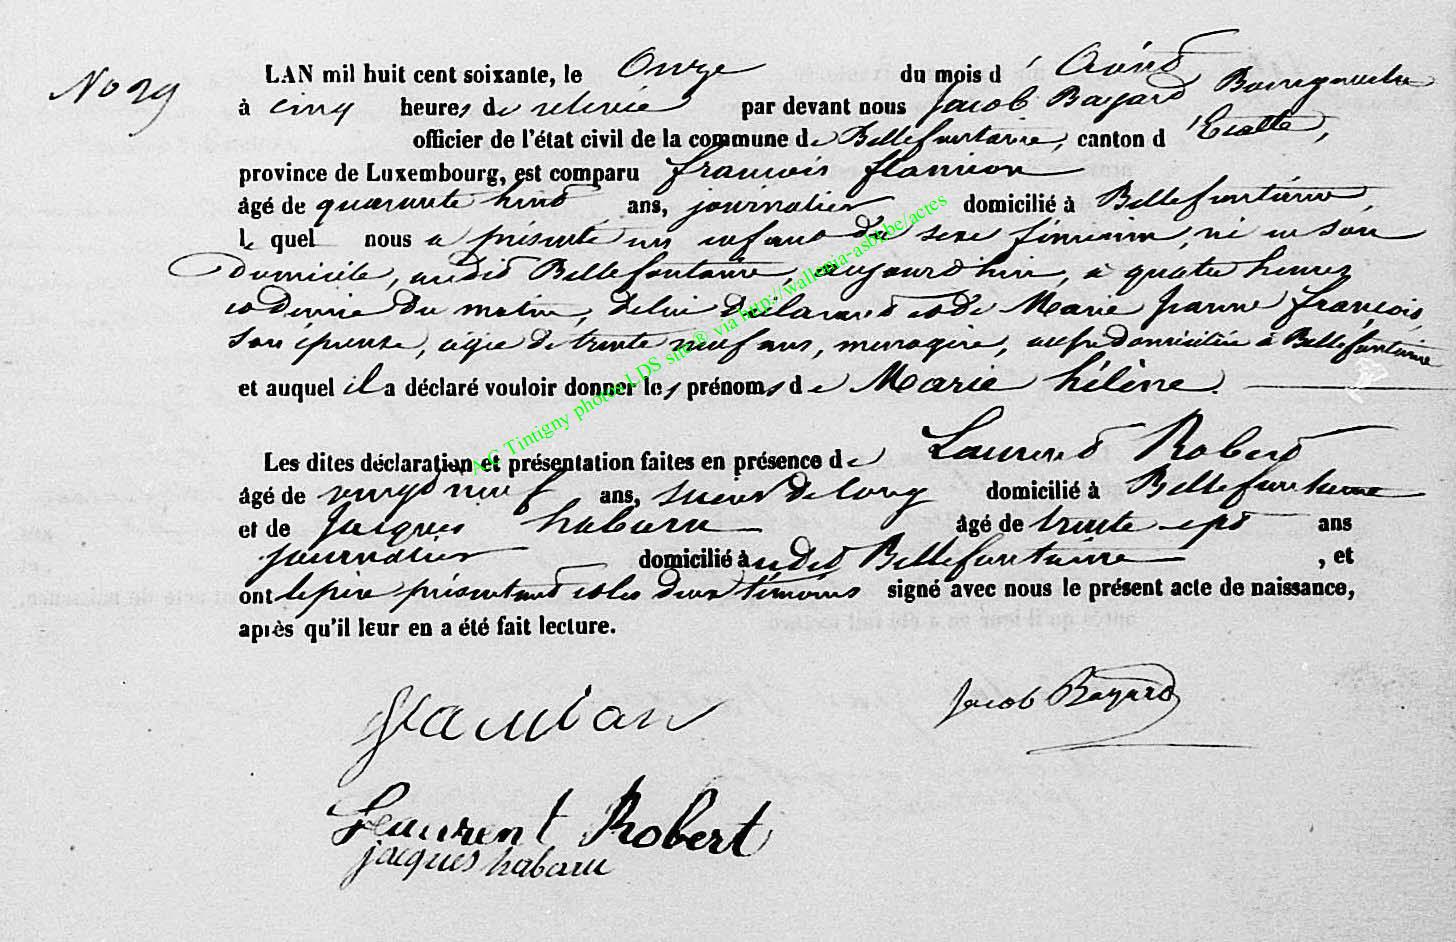 No 29
LAN mil huit cent soixante, le Onze du mois d'Avril
à cinq heures de relevée par devant nous Jacob Bayard Bourgmestre
officier de l'état civil de la commune de Bellefontaine, canton d'Etalle,
province de Luxembourg, est comparu françois flamion
âgé de quarante huit ans, journalier domicilié à Bellefontaine,
le quel nous a présenté un enfant du sexe féminin, né en son
Domicile, audit Bellefontaine, aujourd'hui, à quatre heures
et demie du matin, de lui déclarant et de Marie Jeanne françois,
son épouse, âgée de trente neuf ans, menagère, aussi domiciliée à Bellefontaine
et auquel il a déclaré vouloir donner les prénoms de Marie hélène.
Les dites déclaration et présentation faites en présence de Laurent Robert
âgé de vingt neuf ans, scieur de long domicilié à Bellefontaine
et de Jacques habaru âgé de trente sept ans
journalier domicilié à udit Bellefontaine, et
ont le père présentant et les deux témoins signé avec nous le présent acte de naissance,
après qu'il leur en a été fait lecture.
Jacob Bayard
Laurent Robert
jacques habaru
AC Tintigny photos LDS site® via http://wallonia-asbl.be/actes